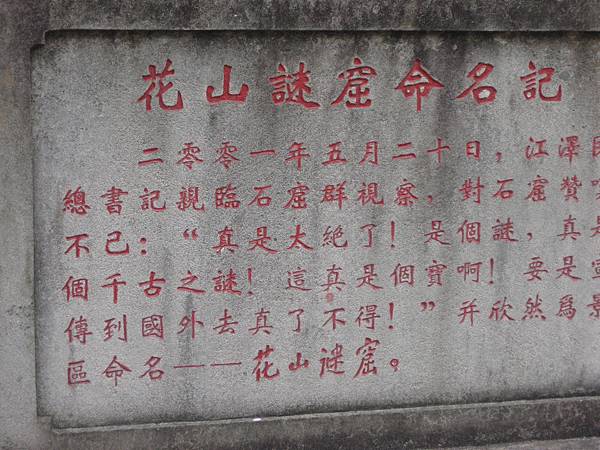 花山謎窟命名記
二零零一年五月二十日，江澤民
總書記親臨石窟群視察，對石窟贊嘆
不已：“真是太絶了！是個謎，真是
個千古之謎！這真是個寶啊！要是宣
傳到國外去真了不得！”并欣然爲景
區命名——花山谜窟。